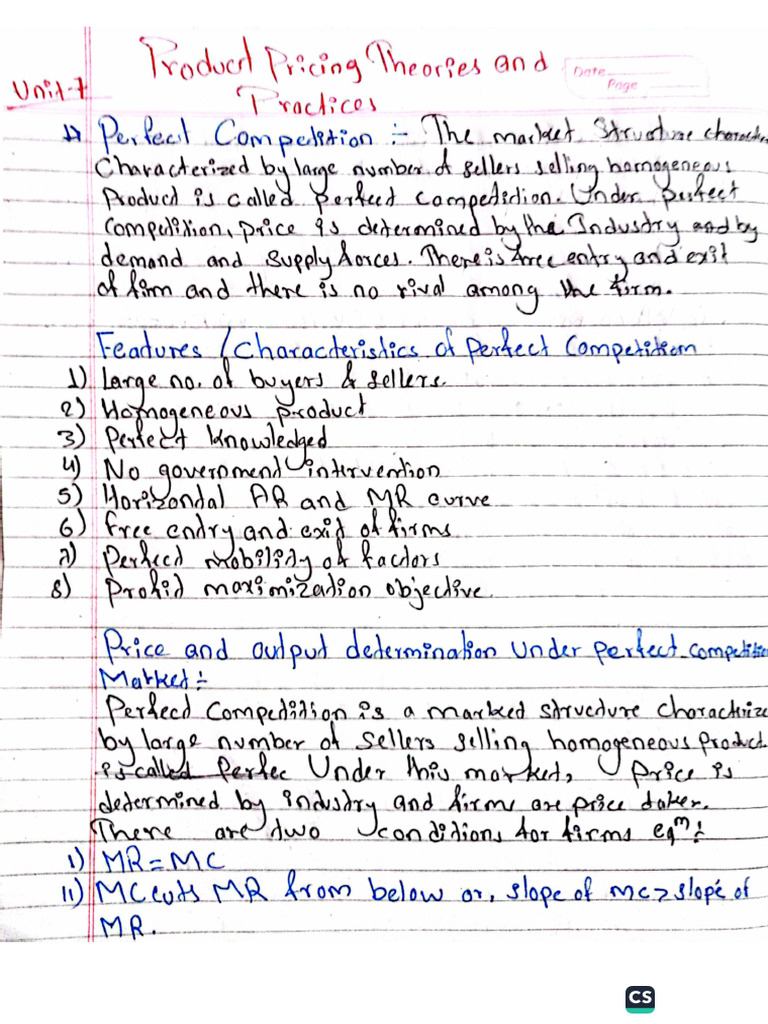 Product Pricing Theories and
Date
Page
Unit-7
Practices
1) Perfect Competition :- The market structure characte
Characterized by large number of sellers selling homogeneous
Product is called perfect competition. Under perfect
Competition, price is determined by the Industry and by
demand and supply forces. There is free entry and exit
of firm and there is no rival among the firm.
Features / Characteristics of Perfect Competition
1) Large no. of buyers & sellers.
2) Homogeneous product
3) Perfect knowledged
4) No government intervention
5) Horizontal AR and MR curve
6) free entry and exit of firms
7) Perfect mobility of factors
8) Profit maximization objective.
Price and output determination under perfect competition
Market:-
Perfect Competition is a market structure charactrize
by large number of sellers selling homogeneous product.
is called Perfec Under this market, price is
determined by industry and firms are price taker.
There are two conditions for firms eqm:
i) MR = MC
ii) MC cuts MR from below or, slope of mc > slope of
MR.
CS